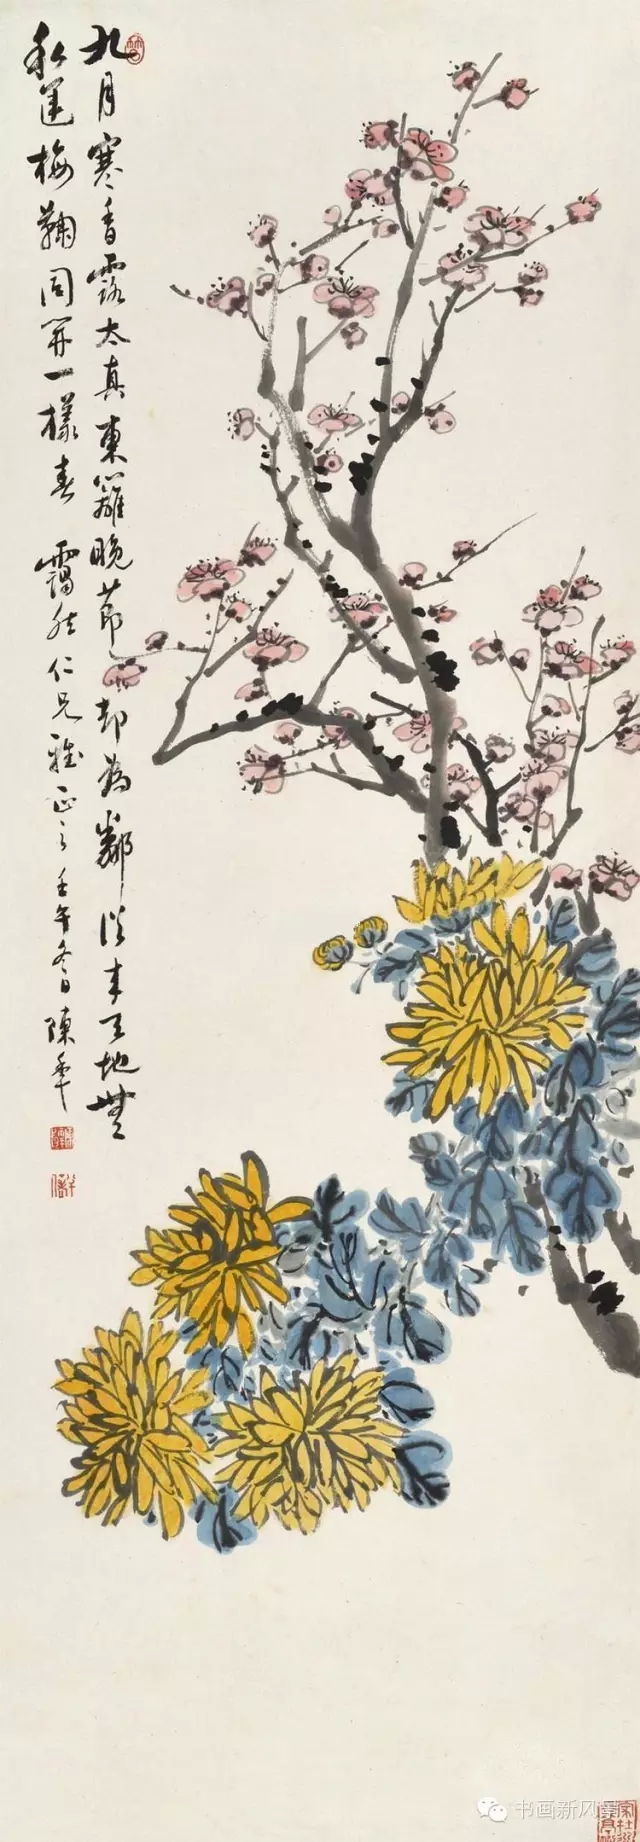 九月寒香露太真東籬晚節却為鄰從来天地無
私運梅鞠同開一樣春 靄然仁兄雅正之 壬午冬日 陳年
书画新风